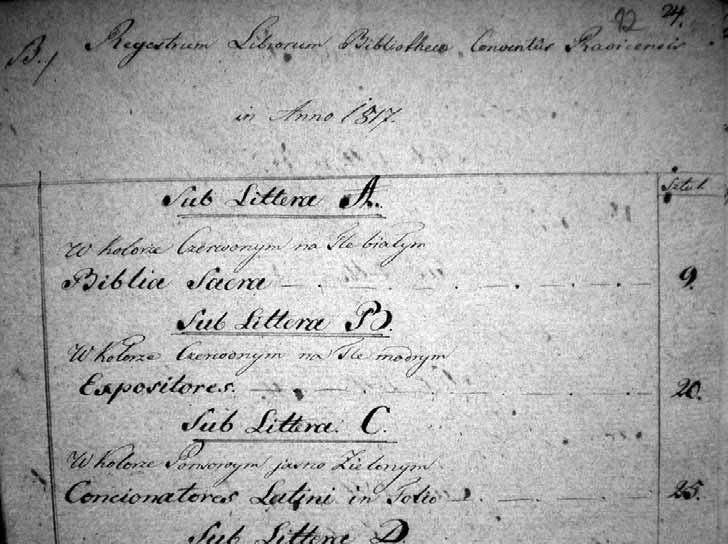 92 24.
B.) Regestrum Librorum Bibliothecæ Conventûs Ravicensis
in Anno 1817.
Sztuk
Sub Littera A.
W kolorze Czerwonym na Tle białym
Biblia Sacra 9.
Sub Littera B.
W kolorze Czerwonym na Tle modrym
Expositores. 20.
Sub Littera. C.
W kolorze Ponsowym jasno Zielonym
Concionatores Latini in Folio 25.
Sub Littera D.